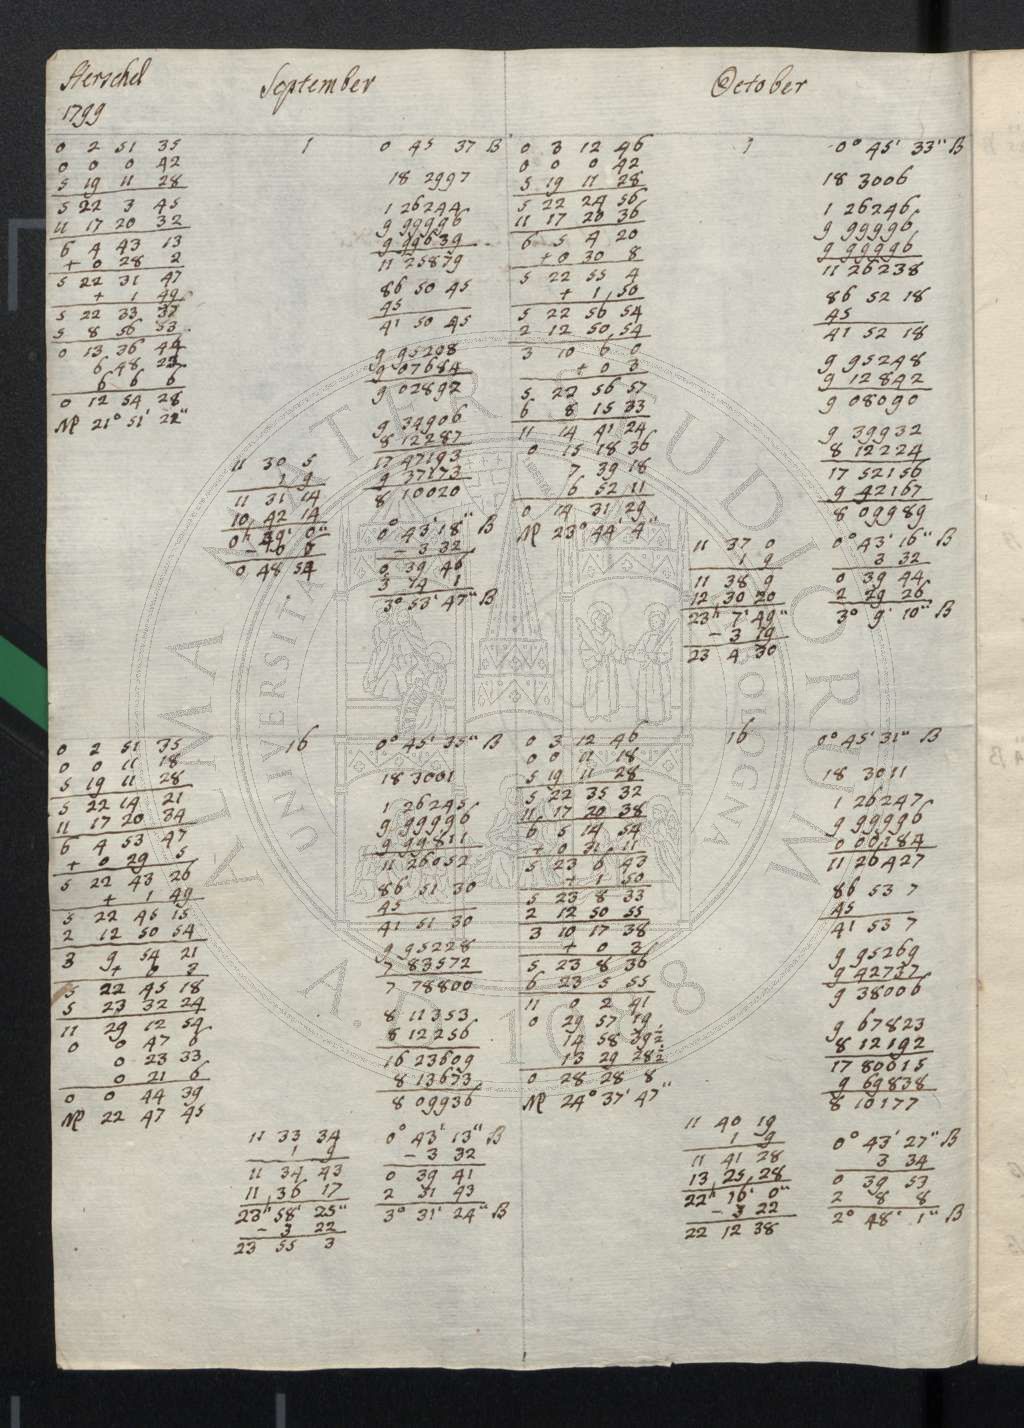 Herschel
1799
September
October
0 2 51 35
0 0 0 42
5 19 11 28
5 22 3 45
11 17 20 32
6 4 43 13
+ 0 28 2
5 22 31 47
+ 1 49
5 22 33 37
5 8 56 53
0 13 36 44
6 48 22
6 6 6
0 12 54 28
♍ 21° 51' 22"
1
0 45 37 B
18 2997
1 26244
9 99996
9 99639
11 25879
86 50 45
45
41 50 45
9 95208
9 07684
9 02892
9 34906
8 12287
17 47193
9 37173
8 10020
11 30 5
1 9
11 31 14
10, 42 14
0h 49' 0"
- 0 6
0 48 54
0° 43' 18" B
- 3 32
0 39 46
3 14 1
3° 53' 47" B
0 3 12 46
0 0 0 42
5 19 11 28
5 22 24 56
11 17 20 36
6 5 4 20
+ 0 30 8
5 22 55 4
+ 1, 50
5 22 56 54
2 12 50, 54
3 10 6 0
+ 0 3
5 22 56 57
6 8 15 33
11 14 41 24
0 15 18 36
7 39 18
6 52 11
0 14 31 29
♍ 23° 44' 4"
1
0° 45' 33" B
18 3006
1 26246
9 99996
9 99996
11 26238
86 52 18
45
41 52 18
9 95248
9 12842
9 08090
9 39932
8 12224
17 52156
9 42167
8 09989
11 37 0
1 9
11 38 9
12 30 20
23h 7' 49"
- 3 19
23 4 30
0° 43' 16" B
3 32
0 39 44
2 29 26
3° 9' 10" B
0 2 51 35
0 0 11 18
5 19 11 28
5 22 14 21
11 17 20 34
6 4 53 47
+ 0 29 5
5 22 43 26
+ 1 49
5 22 45 15
2 12 50 54
3 9 54 21
+ 0 3
5 22 45 18
5 23 32 24
11 29 12 54
0 0 47 6
0 23 33
0 21 6
0 0 44 39
♍ 22 47 45
16
0° 45' 35" B
18 3001
1 26245
9 99996
9 99811
11 26052
86 51 30
45
41 51 30
9 95228
7 83572
7 78800
8 11353
8 12256
16 23609
8 13673
8 09936
11 33 34
1 9
11 34 43
11, 36 17
23h 58' 25"
- 3 22
23 55 3
0° 43' 13" B
- 3 32
0 39 41
2 51 43
3° 31' 24" B
0 3 12 46
0 0 11 18
5 19 11 28
5 22 35 32
11, 17 20 38
6 5 14 54
+ 0 31, 11
5 23 6 43
+ 1 50
5 23 8 33
2 12 50 55
3 10 17 38
+ 0 3
5 23 8 36
6 23 5 55
11 0 2 41
0 29 57 19
14 58 39½
13 29 28½
0 28 28 8
♍ 24° 37' 47"
16
0° 45' 31" B
18 3011
1 26247
9 99996
0 00184
11 26427
86 53 7
45
41 53 7
9 95269
9 42737
9 38006
9 67823
8 12192
17 80015
9 69838
8 10177
11 40 19
1 9
11 41 28
13, 25, 28
22h 16' 0"
- 3 22
22 12 38
0° 43' 27" B
3 34
0 39 53
2 8 8
2° 48' 1" B
ALMA MATER STUDIORUM
UNIVERSITA DI BOLOGNA
A.D. 1088